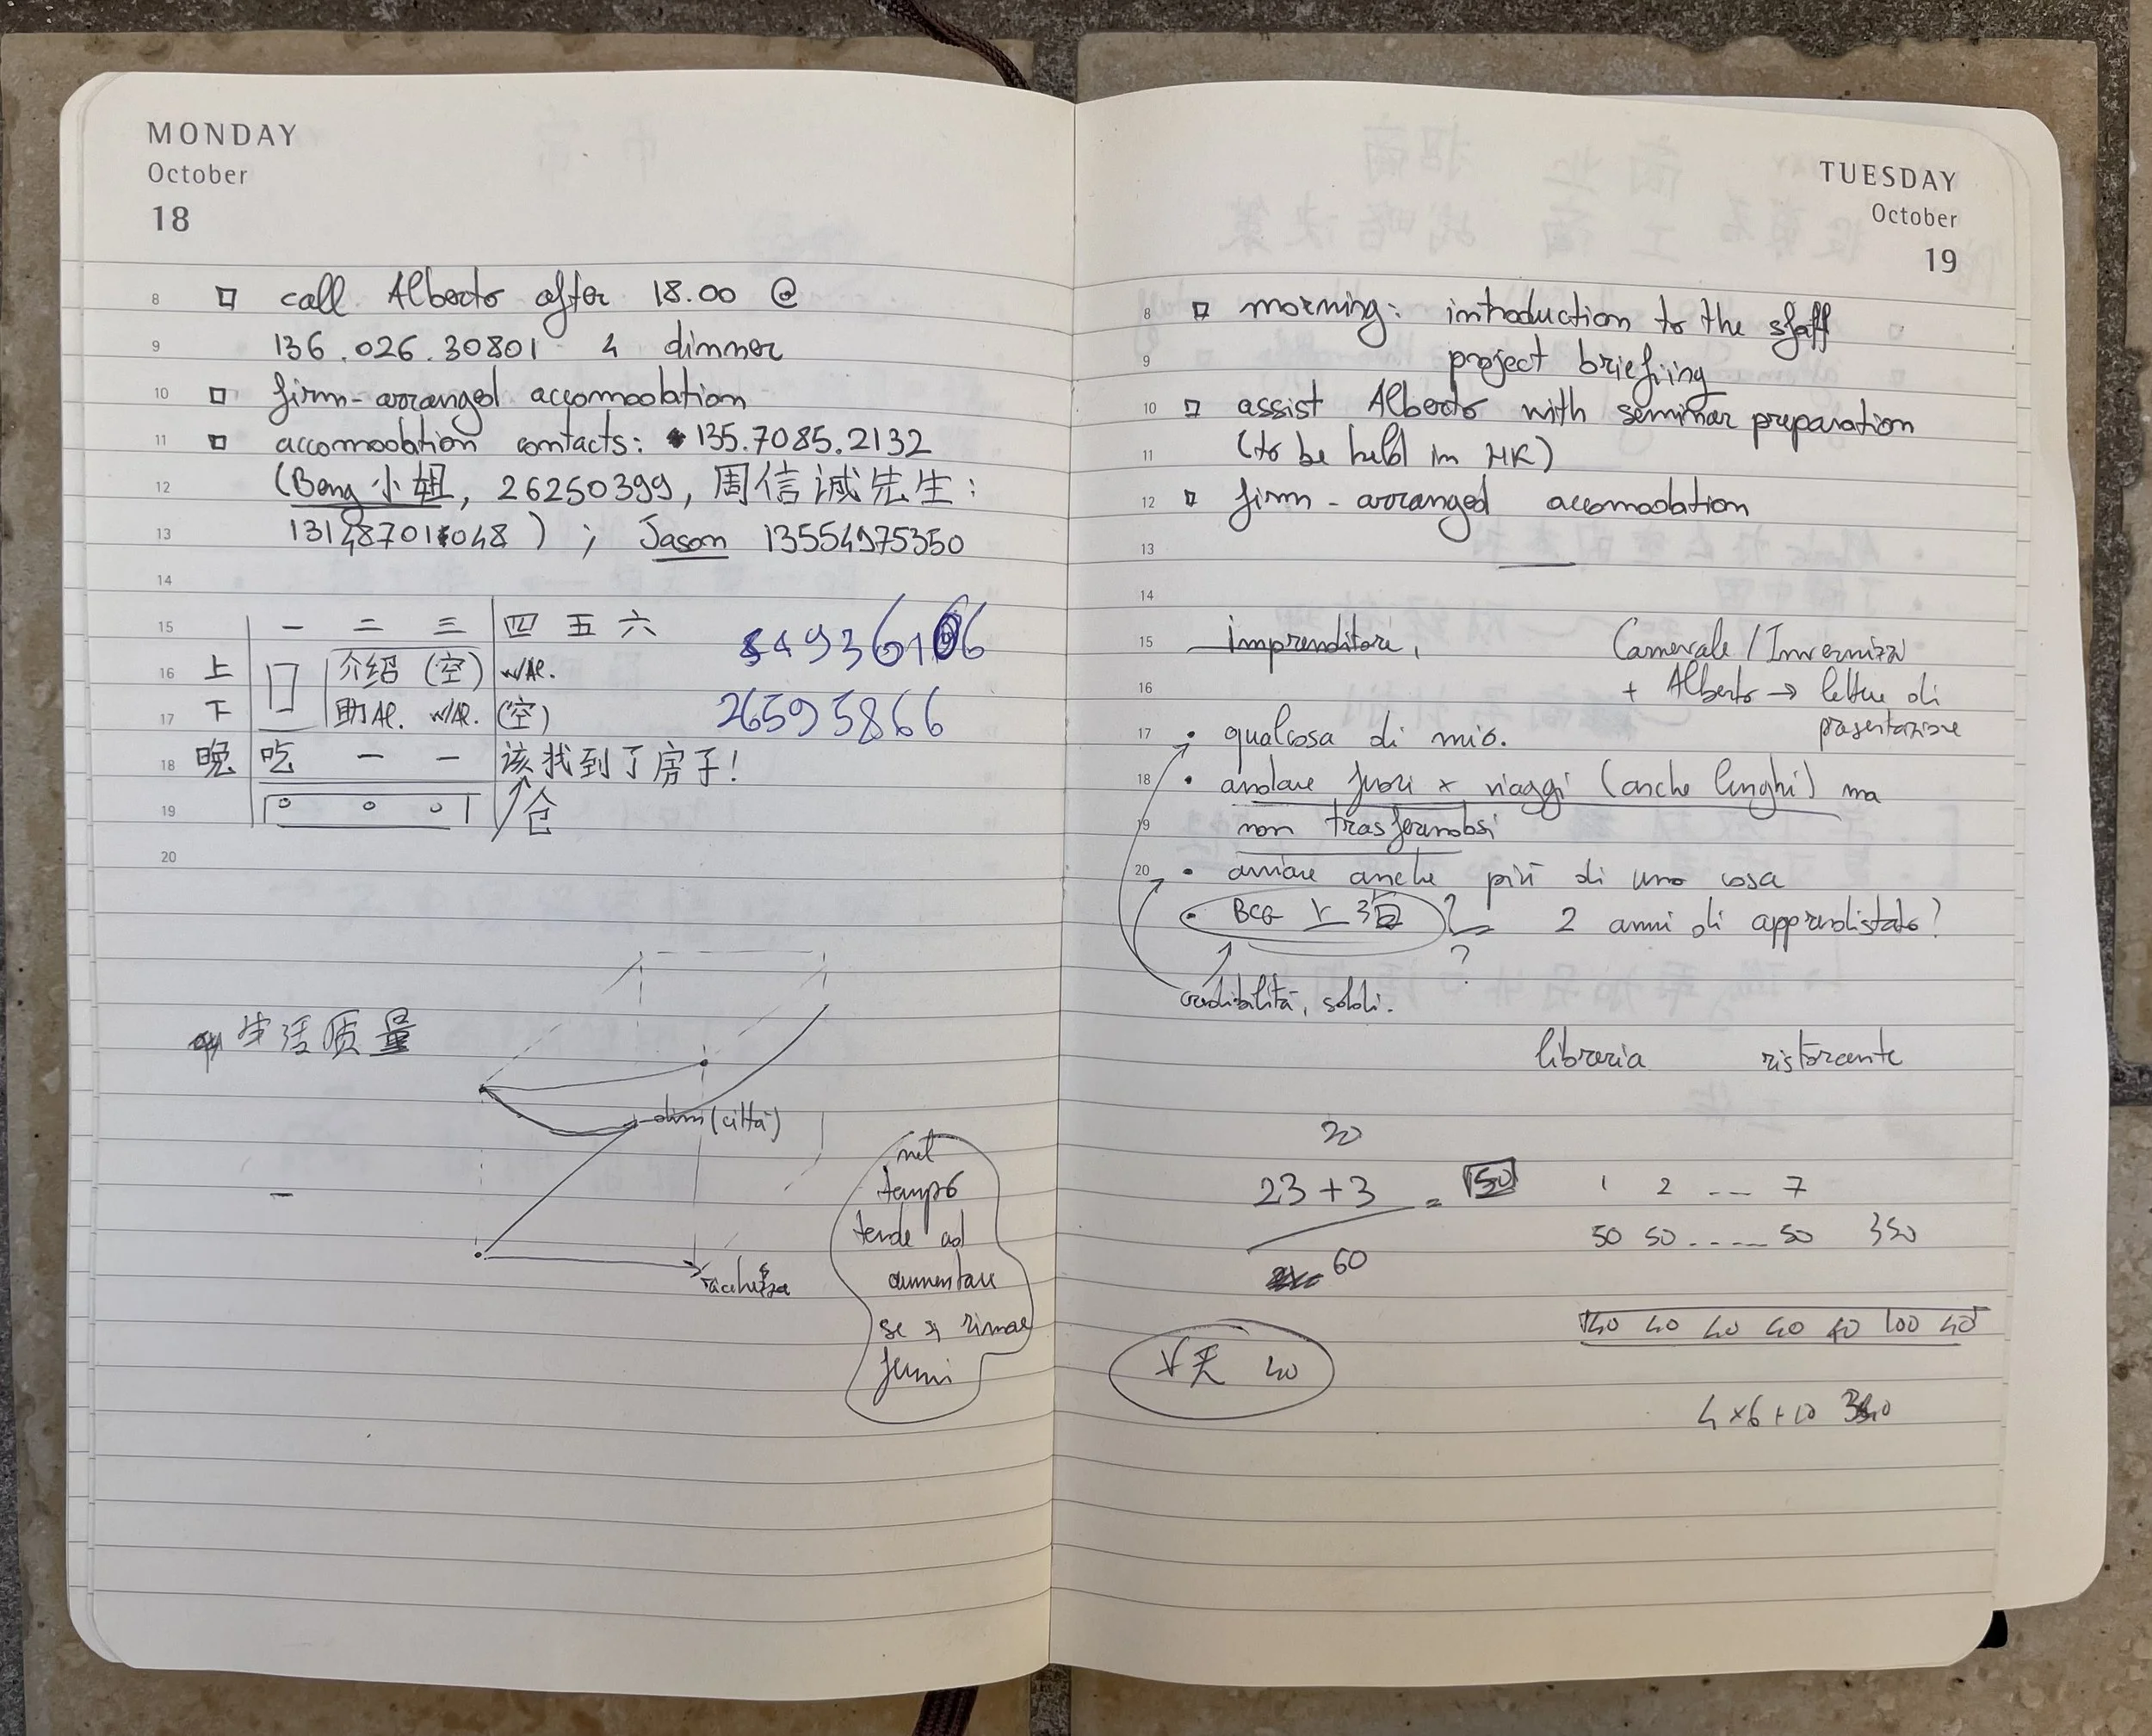 MONDAY
October
18
8 call Alberto after 18.00 @
9 136.026.30801 4 dinner
10 firm-arranged accomodation
11 accomodation contacts: 135.7085.2132
12 (Bong 小姐, 26250399, 周信诚先生:
13 ); Jason 13554975350
14
15 一 二 三 四 五 六
16 上 介绍 (空) w/Al.
17 下 助Al. w/Al. (空)
26595866
18 晚 吃 一 一 该找到了房子!
19 仓
20
生活质量
dim (città)
ricchezza
nel
tempo
tende ad
aumentare
se si rimane
fermi
TUESDAY
October
19
8 morning: introduction to the staff
9 project briefiing
10 assist Alberto with seminar preparation
11 (to be held in HK)
12 firm-arranged accomodation
13
14
15 imprenditore, Camerale / Invernizzi
16 + Alberto → lettere di
presentazione
17 • qualcosa di mio.
18 • andare fuori x viaggi (anche lunghi) ma
19 non trasferendosi
20 • avviare anche più di una cosa
• BCG 上海 ? 2 anni di apprendistato?
?
credibilità, soldi.
libreria ristorante
20
23 + 3 = 50 1 2 ... 7
50 50 .... 50 350
60
40 40 40 40 100 40
天 40
4 x 6 + 10